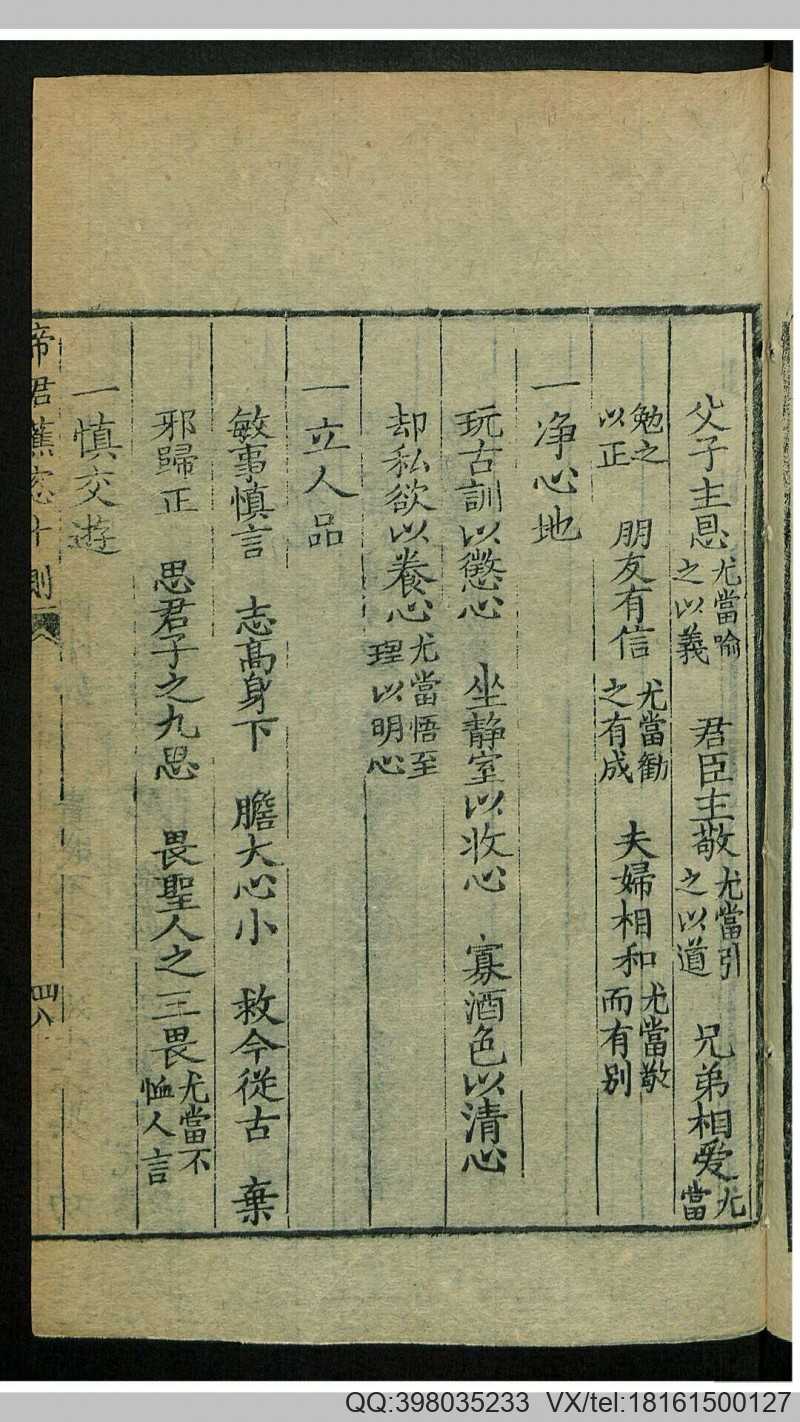 父子主恩尤當喻之以義 君臣主敬尤當引之以道 兄弟相爱尤當
勉之以正 朋友有信尤當勸之有成 夫婦相和尤當敬而有别
一净心地
玩古訓以懲心 坐靜室以收心 寡酒色以清心
却私欲以養心尤當悟至理以明心
一立人品
敏事慎言 志高身下 膽大心小 救今從古 棄
邪歸正 思君子之九思 畏聖人之三畏尤當不恤人言
一慎交遊
帝君蕉窓十則
四八
QQ:398035233 VX/tel:18161500127